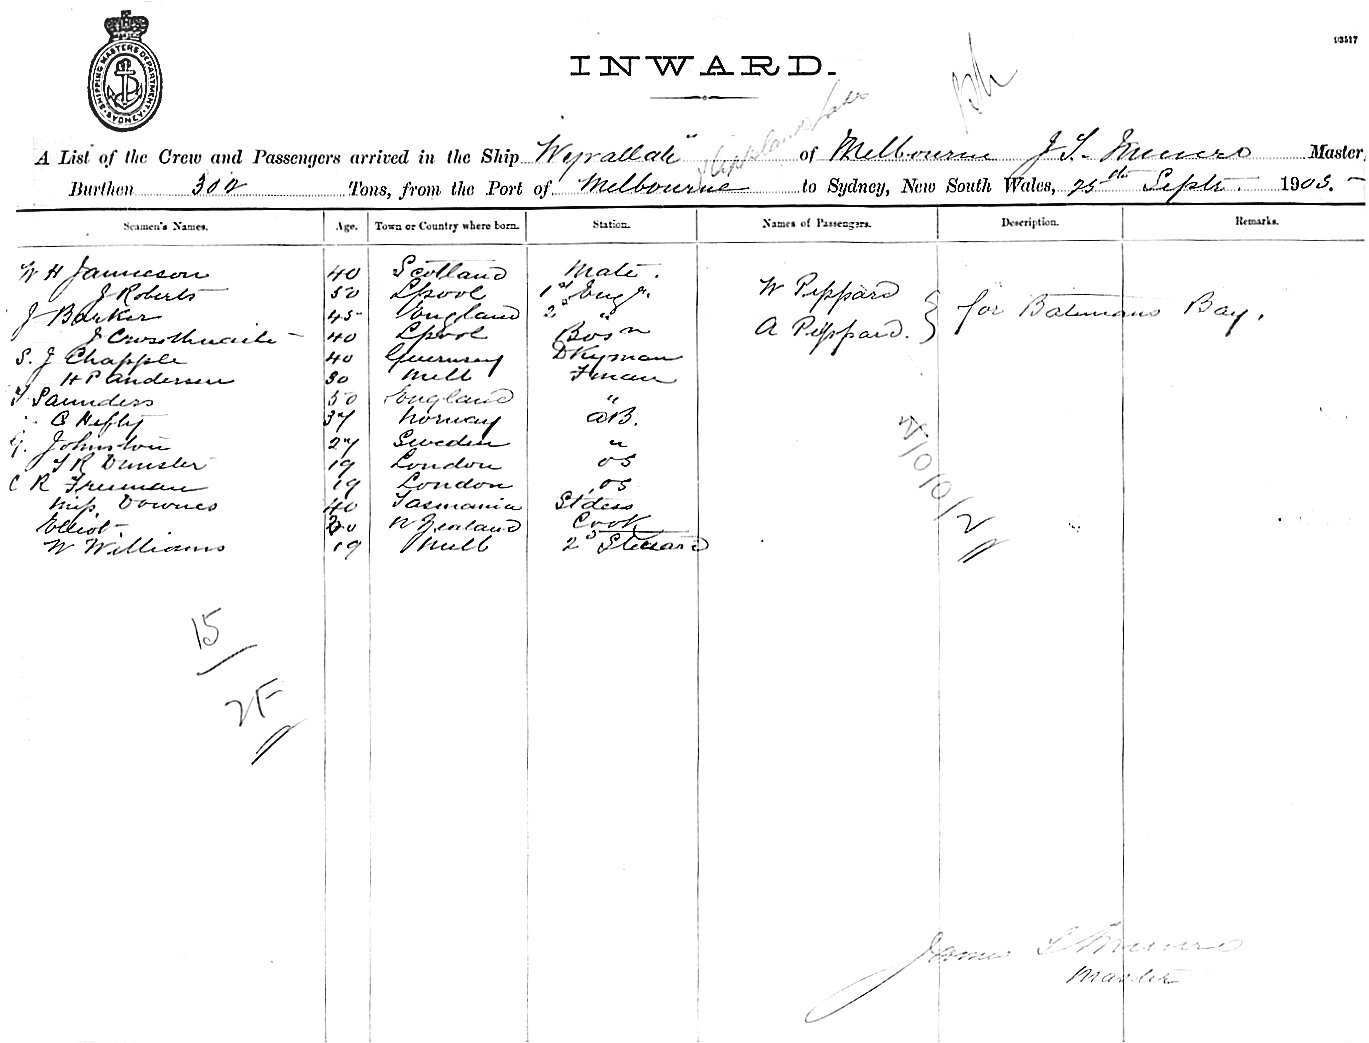 93517
SHIPPING MASTERS DEPARTMENT
SYDNEY
INWARD.
A List of the Crew and Passengers arrived in the Ship Wyrallah" of Melbourne J S. Munro Master,
Gippsland Lakes
Burthen 302 Tons, from the Port of Melbourne to Sydney, New South Wales, 25th Septr. 1905.
Seamen's Names. Age. Town or Country where born. Station. Names of Passengers. Description. Remarks.
W H Jamieson 40 Scotland Mate.
J Roberts 50 Lpool 1st Engr. W Peppard
J Barker 45 England 2d " for Batemans Bay.
J Crosthwaite 40 Lpool Bosn A Peppard.
S. J Chapple 40 Guernsey Dkyman
H P Andersen 30 Melb Fman
T Saunders 50 England "
C Hefty 37 Norway AB.
G. Johnston 27 Sweden "
T R Dunster 19 London OS
C R Freeman 19 London OS
Miss Downes 40 Tasmania Stdess
Elliot 30 N Zealand Cook
W Williams 19 Melb 2d Steward
N/0/0/2
15/
2F
James S Munro
Master